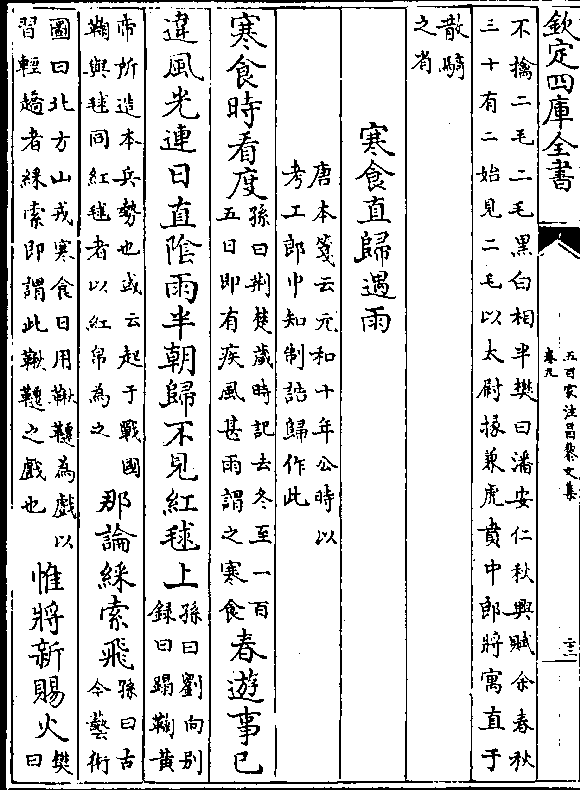 欽定四庫全書
五百家注昌黎文集
卷九
二十二
不擒二毛二毛黑白相半樊曰潘安仁秋興賦余春秋
三十有二始見二毛以太尉掾兼虎賁中郎將寓直于
散騎
之省
寒食直歸遇雨
唐本箋云元和十年公時以
考工郎中知制誥歸作此
寒食時看度
孫曰荆楚歲時記去冬至一百
五日即有疾風甚雨謂之寒食
春遊事已
違風光連日直陰雨半朝歸不見紅毬上
孫曰劉向别
録曰蹋鞠黄
帝所造本兵勢也或云起于戰國
鞠與毬同紅毬者以紅帛為之
那論綵索飛
孫曰古
今藝術
圖曰北方山戎寒食日用鞦韆為戲以
習輕趫者綵索即謂此鞦韆之戲也
惟將新賜火
樊
曰